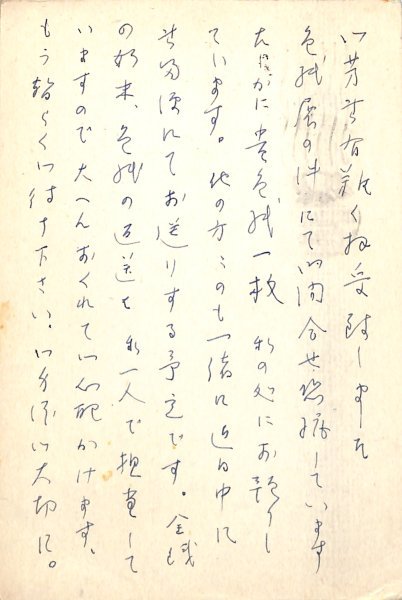 御芳書有難く拝受致しました
色紙展の件にて御問合せ恐縮しています
たしかに貴色紙一枚 私の処にお預りし
ています。他の方々のも一緒に近日中に
書留便にてお送りする予定です。金銭
の始末、色紙の返送も私一人で担当して
いますので大へんおくれて御心配かけます、
もう暫らく御待ち下さい。御身御大切に。